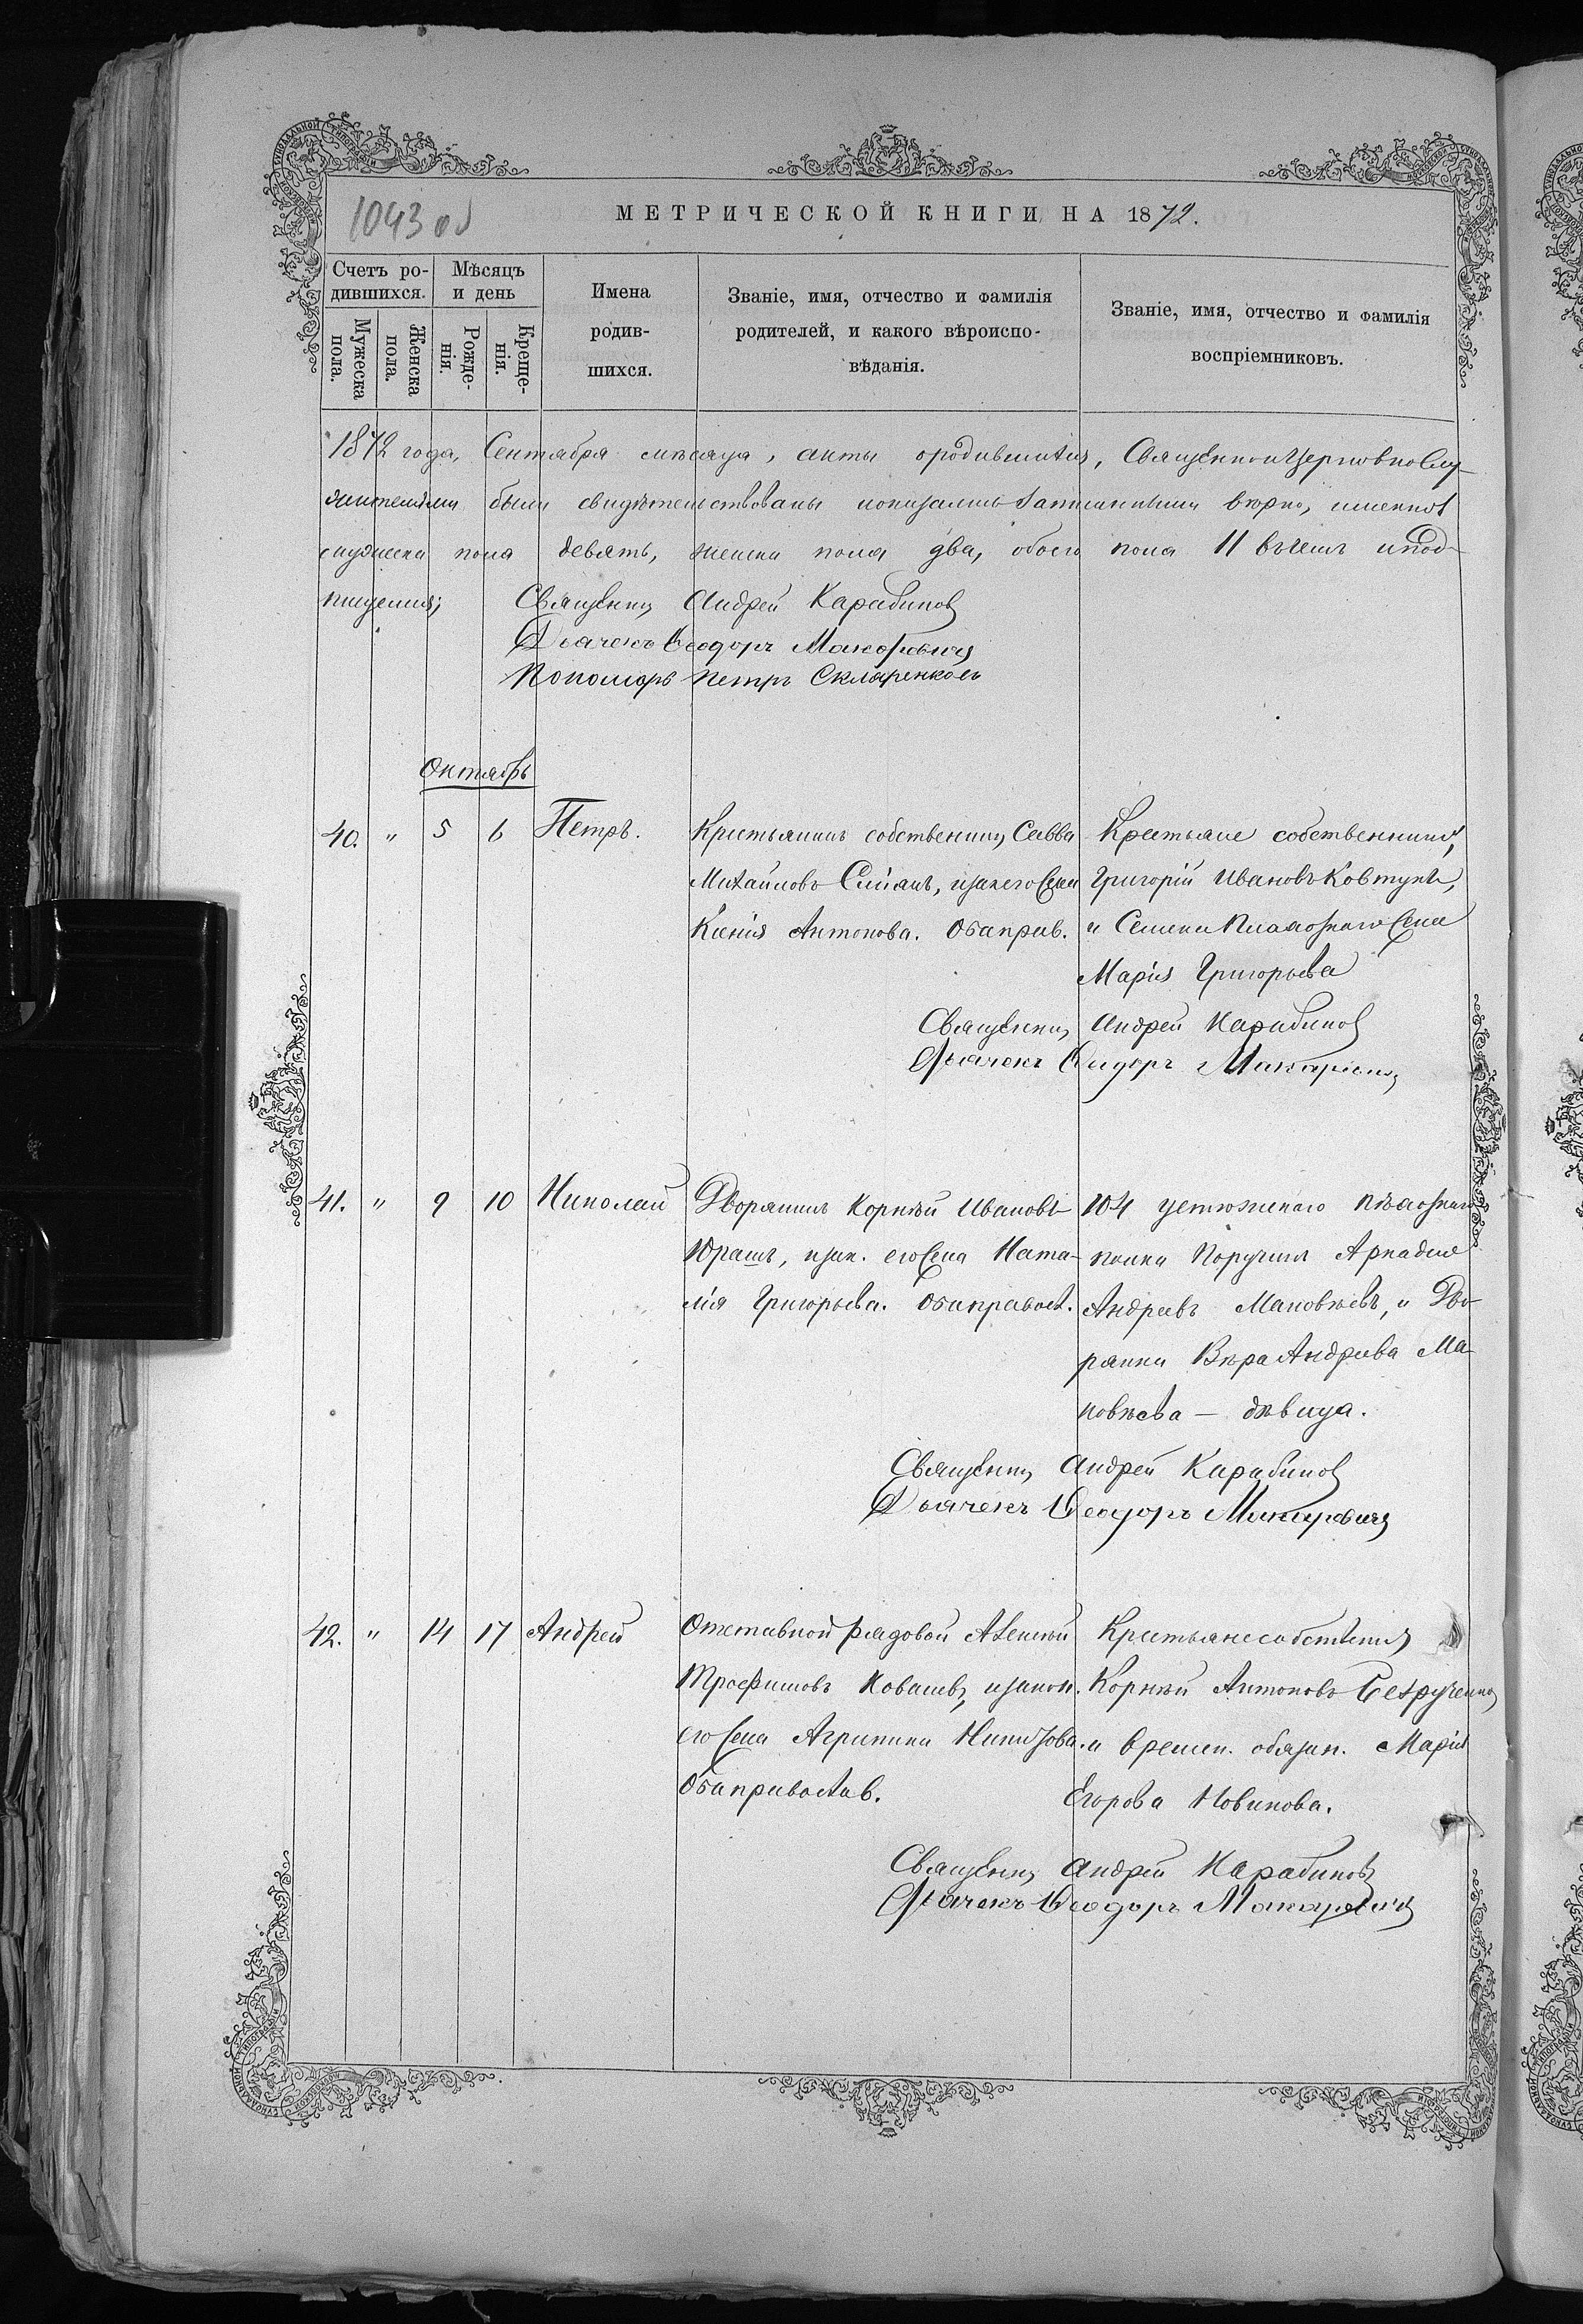 1043 об
МЕТРИЧЕСКОЙ КНИГИ НА 1872.
Счетъ родившихся.
Мужеска пола.
Женска пола.
Мѣсяцъ и день
Рожденія.
Крещенія.
Имена родившихся.
Званіе, имя, отчество и фамилія родителей, и какого вѣроисповѣданія.
Званіе, имя, отчество и фамилія воспріемниковъ.
1872 года, Сентября мѣсяца, акты о родившихся, Священно и Церковно Слу-
жителями были свидѣтельствованы и оказались записанными вѣрно, именно
мужеска пола девять, женска пола два, обоего пола 11 въ чемъ и под-
писуемся;
Священникъ Андрей Карабиновъ
Дьячекъ Ѳеодоръ Макаревичъ
Пономарь Петръ Скляренковъ
Октябрь
40. " 5 6 Петръ.
Крестьянинъ собственникъ Савва
Михайловъ , и законная его жена
Ксенія Антонова. Оба прав.
Крестьяне собственники,
Григорій Ивановъ Ковтунъ,
и Семена жена
Марія Григорьева
Священникъ Андрей Карабиновъ
Дьячекъ Ѳеодоръ Макаревичъ
41. " 9 10 Николай
Дворянинъ Корнѣй Ивановъ
Юрашъ, и зак. его жена Ната-
лія Григорьева. Оба правосл.
104 Устюжскаго пѣхотнаго
полка Поручикъ Аркадій
Андреевъ Маковѣевъ, и Дво-
рянка Вѣра Андреева Ма-
ковѣева — дѣвица.
Священникъ Андрей Карабиновъ
Дьячекъ Ѳеодоръ Макаревичъ
42. " 14 17 Андрей
Отставной рядовой Алексѣй
Трофимовъ Ковалевъ, и закон.
его жена Агрипина
Оба православ.
Крестьяне собственникъ
Корнѣй Антоновъ Безрученко
и времен. обязан. Марія
Егорова Новикова.
Священникъ Андрей Карабиновъ
Дьячекъ Ѳеодоръ Макаревичъ